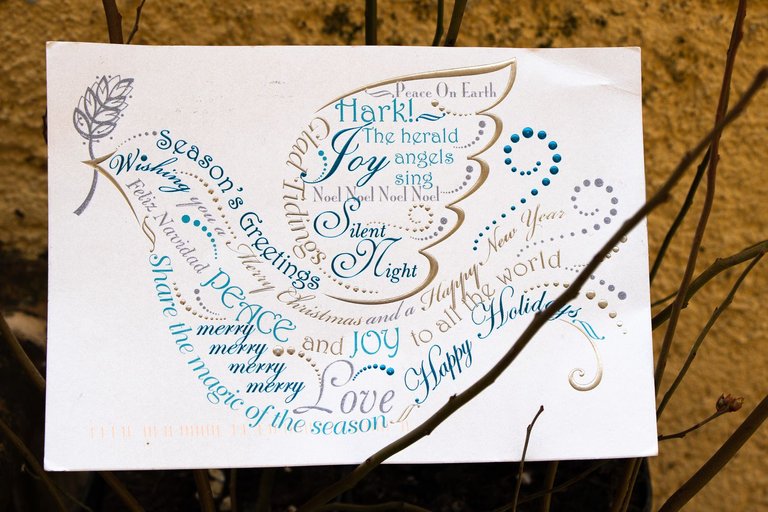 Peace On Earth
Hark!
The herald
angels
sing
Joy
Noel Noel Noel Noel
Glad Tidings
Silent
Night
Season's Greetings
Wishing you a Merry Christmas and a Happy New Year
Feliz Navidad
PEACE and JOY to all the world
merry
merry
merry
merry
Love
Happy Holidays
Share the magic of the season